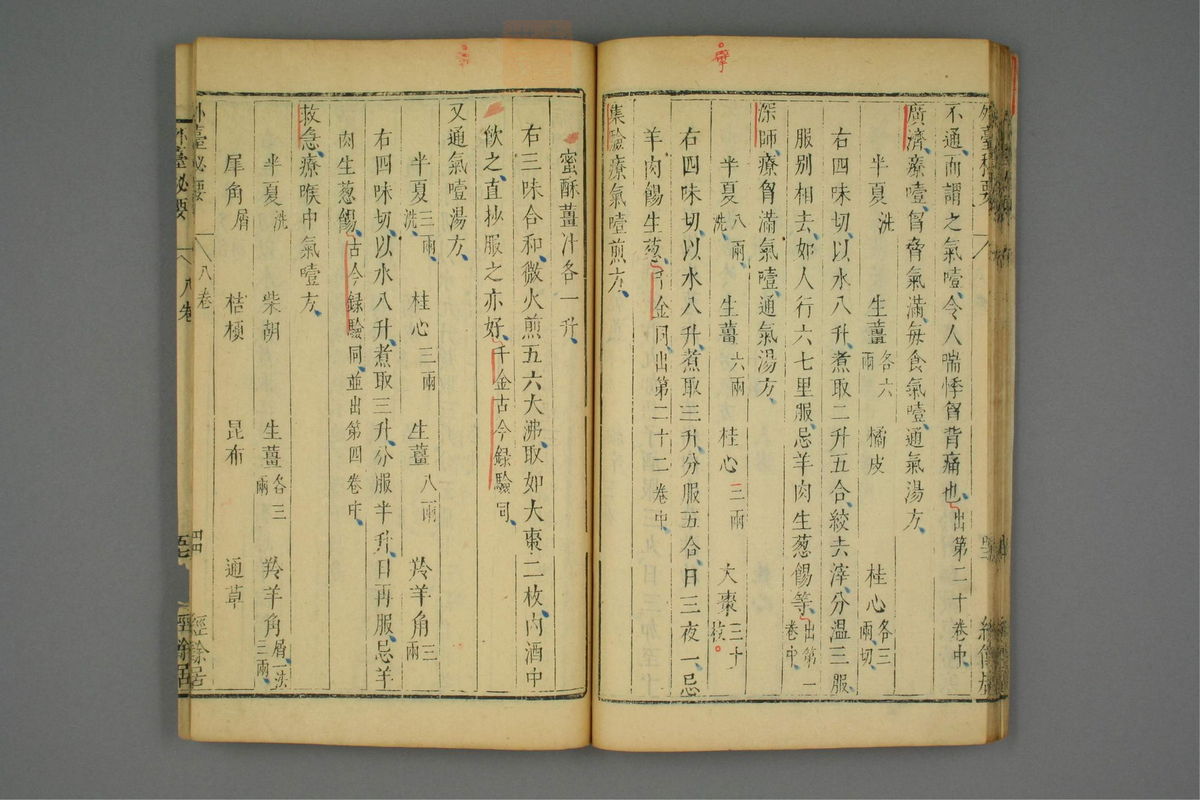 不通而謂之氣噎令人喘悸胷背痛也出第二十卷中
廣濟療噎胷脅氣滿每食氣噎通氣湯方
半夏洗 生薑各六兩 橘皮 桂心各三兩切
右四味切以水八升煮取二升五合絞去滓分溫三服
服別相去如人行六七里服忌羊肉生葱餳等出第一卷中
深師療胷滿氣噎通氣湯方
半夏八兩洗 生薑六兩 桂心三兩 大棗三十枚
右四味切以水八升煮取三升分服五合日三夜一忌
羊肉餳生葱千金同出第二十二卷中
集驗療氣噎煎方
蜜酥薑汁各一升
右三味合和微火煎五六大沸取如大棗二枚內酒中
飲之直抄服之亦好千金古今録驗同
又通氣噎湯方
半夏三兩洗 桂心三兩 生薑八兩 羚羊角三兩
右四味切以水八升煮取三升分服半升日再服忌羊
肉生葱餳古今録驗同並出第四卷中
救急療喉中氣噎方
半夏洗 柴胡 生薑各三兩 羚羊角屑一法三兩
犀角屑 桔梗 昆布 通草
外臺秘要 八卷 四 經餘居